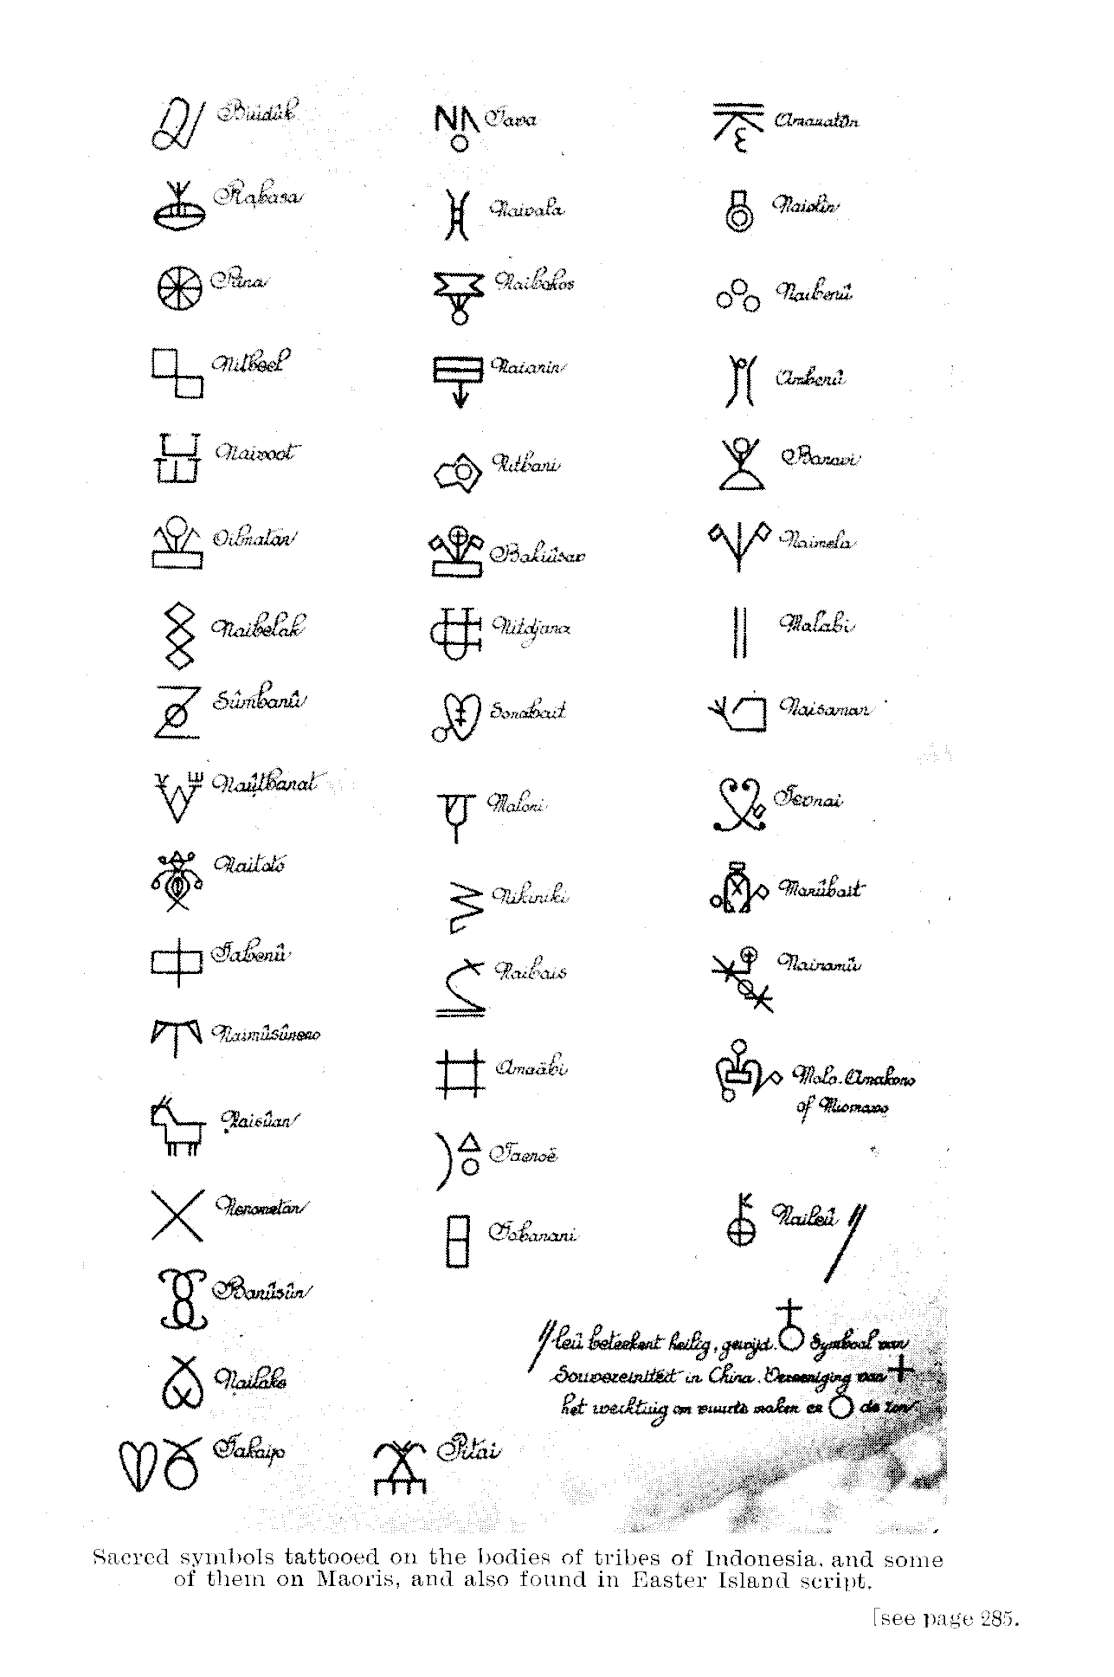 Biidûk
Rabasa
Pina
Nitboel
Naisoot
Oibnatan
Naibelak
Sûmbanû
Naûtbanat
Naitoto
Tabenû
Naimûsûneno
Naisûan
Nenometan
Banûsûn
Nailake
Takaip
Pitai
Tava
Naivala
Naibokos
Naianin
Nitbani
Bakiûsav
Nitdjana
Sonabait
Maloni
Nikiniki
Naibais
Amaäbi
Taenoë
Tobanani
Amanatûn
Naiolin
Naibenû
Ambenû
Banavi
Naimela
Malabi
Naisaman
Tevnai
Manûbait
Nainamû
Molo. Amakono
of Miomavo
Naileû //
// leû beteekent heilig, gewijd. Symbool van
Souvereiniteit in China. Vereeniging van
het werktuig om vuur te maken en de zon
Sacred symbols tattooed on the bodies of tribes of Indonesia, and some
of them on Maoris, and also found in Easter Island script.
[see page 285.